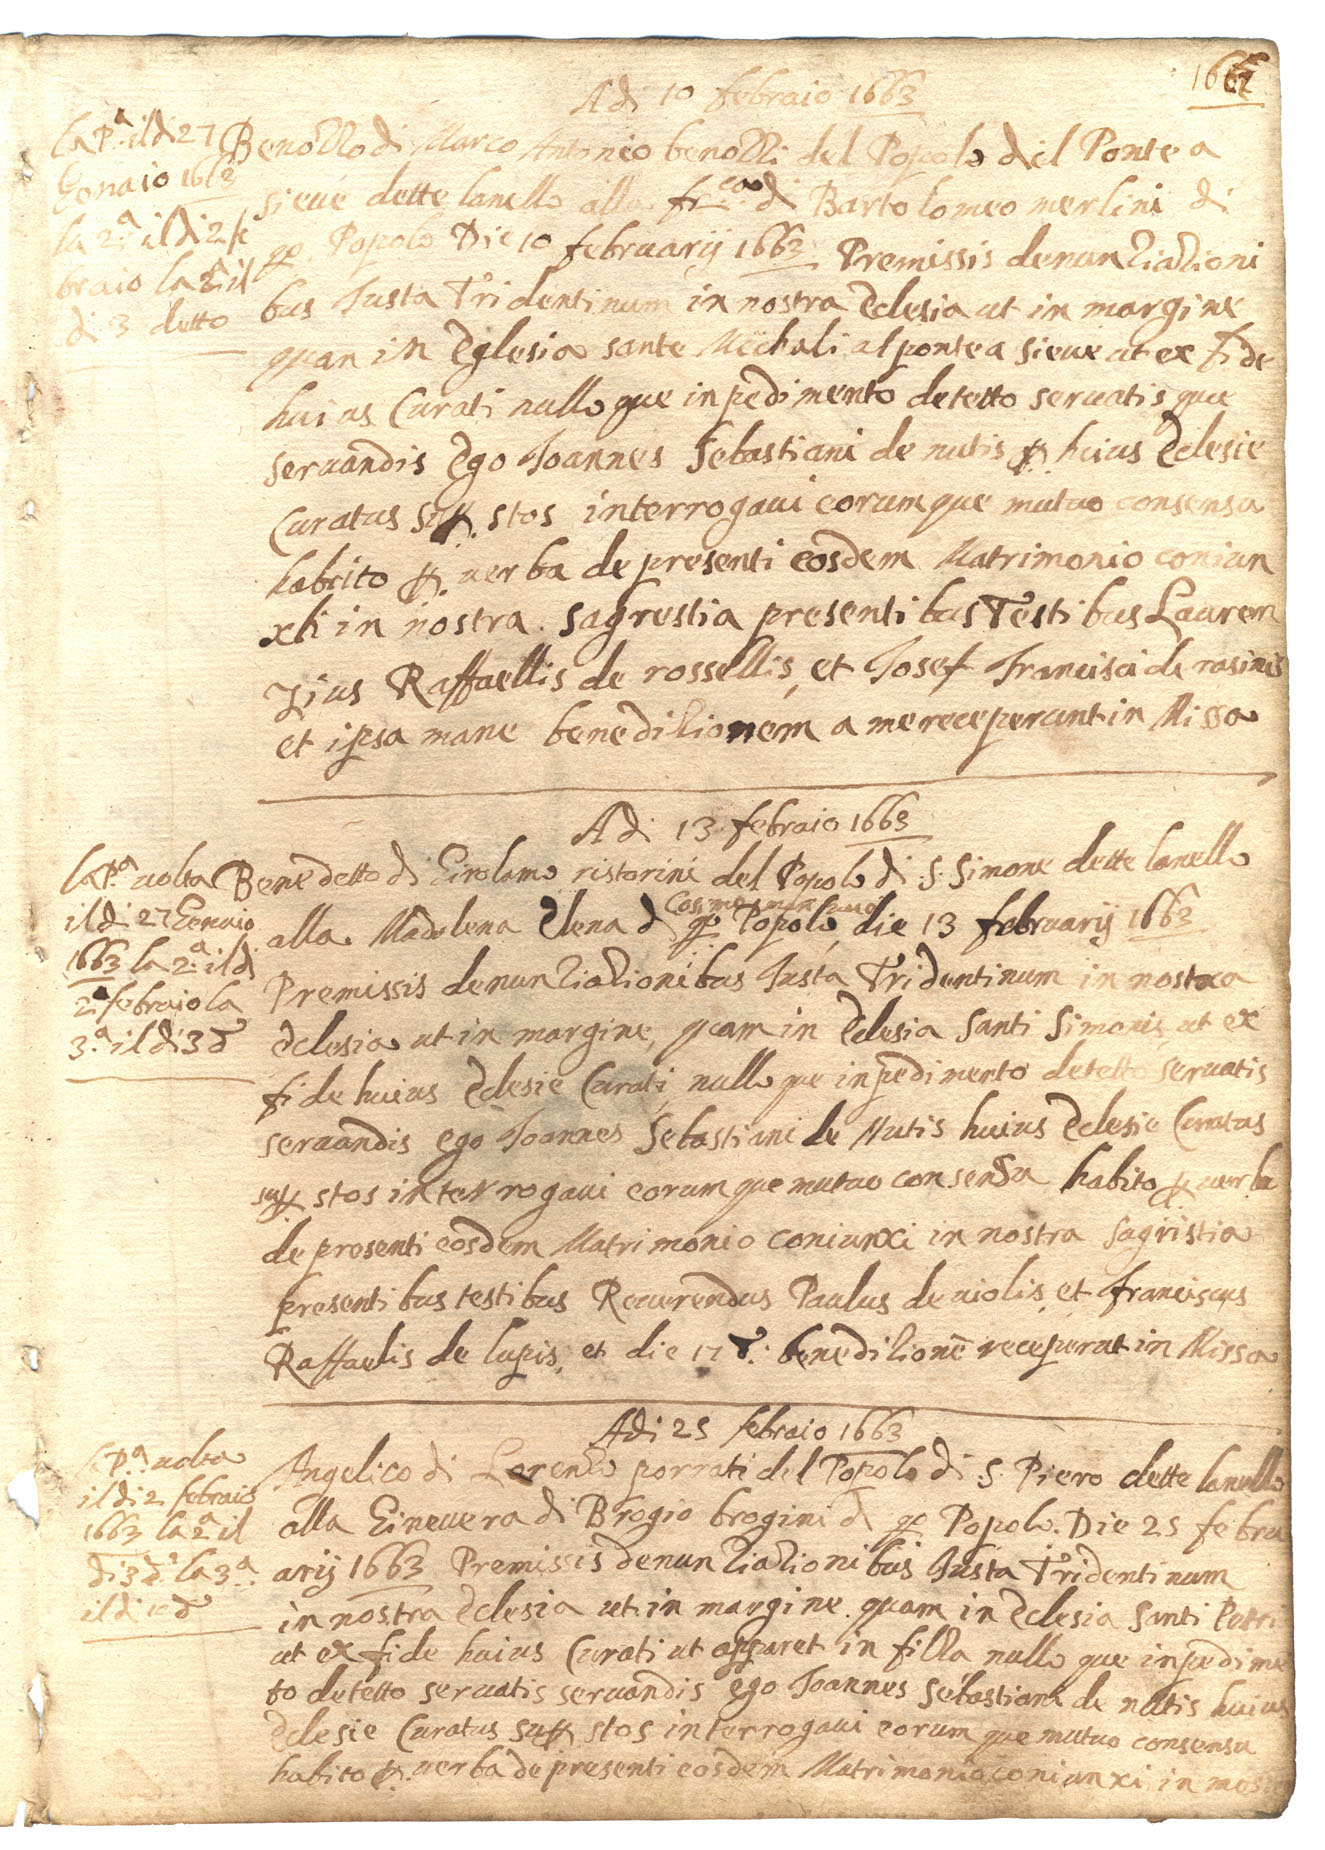 1662
Adi 10 febraio 1663
la Pa. il di 27
Genaio 1663
la 2a. il di 2 fe
braio la 3a il
di 3 detto
Benozzo di Marco Antonio benozzi del Popolo del Ponte a
sieve dette lanello alla fr.ca di Bartolomeo merlini di
qo. Popolo Die 10 februarij 1663 Premissis denuntiationi
bus Justa Tridentinum in nostra Eclesia ut in margine
quan in Eglesia sante Micholi al ponte a sieve ut ex fide
huius Curati nullo que inpedimento detetto servatis que
servandis Ego Joannes Sebastiani de nutis huius Eclesie
Curatus sup. stos interrogavi eorumque mutuo consensu
habeito p. verba de presenti eosdem Matrimonio coniun
xti in nostra sagrestia presentibus Testibus Lauren
zius Raffaellis de rossellis, et Josef Francisci de rasinis
et ipsa mane benedizionem a me receperunt in Missa
Adi 13 febraio 1663
la Pa. volta
il di 27 Genaio
1663 la 2a. il di
2 febraio la
3a. il di 3 d
Benedetto di Girolamo ristorini del Popolo di S. Simone dette lanello
alla Madalena Elena d qo Popolo, die 13 februarij 1663
Premissis denuntiationibus Justa Tridentinum in nostra
Eclesia ut in margine, quam in Eclesia Santi Simonis, ut ex
fide huius Eclesie Curati, nullo que inpedimento detetto servatis
servandis ego Joannes Sebastiani de Nutis huius Eclesie Curatus
sup. stos interrogavi eorumque mutuo consensu habito p. verba
de presenti eosdem Matrimonio coniunxi in nostra sagristia
presentibus testibus Reverendus Paulus de violis, et franciscus
Raffaelis de lupis, et die 17 d. benedizionē receperut in Missa
Adi 25 febraio 1663
la Pa. volta
il di 2 febraio
1663 la 2a il
di 3 d. la 3a.
il di 10 d
Angelico di Lorenzo porrati del Popolo di S. Piero dette lanello
alla Ginevera di Brogio brogini d qo Popolo. Die 25 febru
arij 1663 Premissis denuntiationibus Justa Tridentinum
in nostra Eclesia ut in margine quam in Eclesia Santi Petri
ut ex fide huius Curati ut apparet in filza nullo que inpedime
to detetto servatis servandis ego Joannes Sebastiani de nutis huius
Eclesie Curatus sup stos interrogavi eorum que mutuo consensu
habito p. verba de presenti eosdem Matrimonio coniunxi in nost